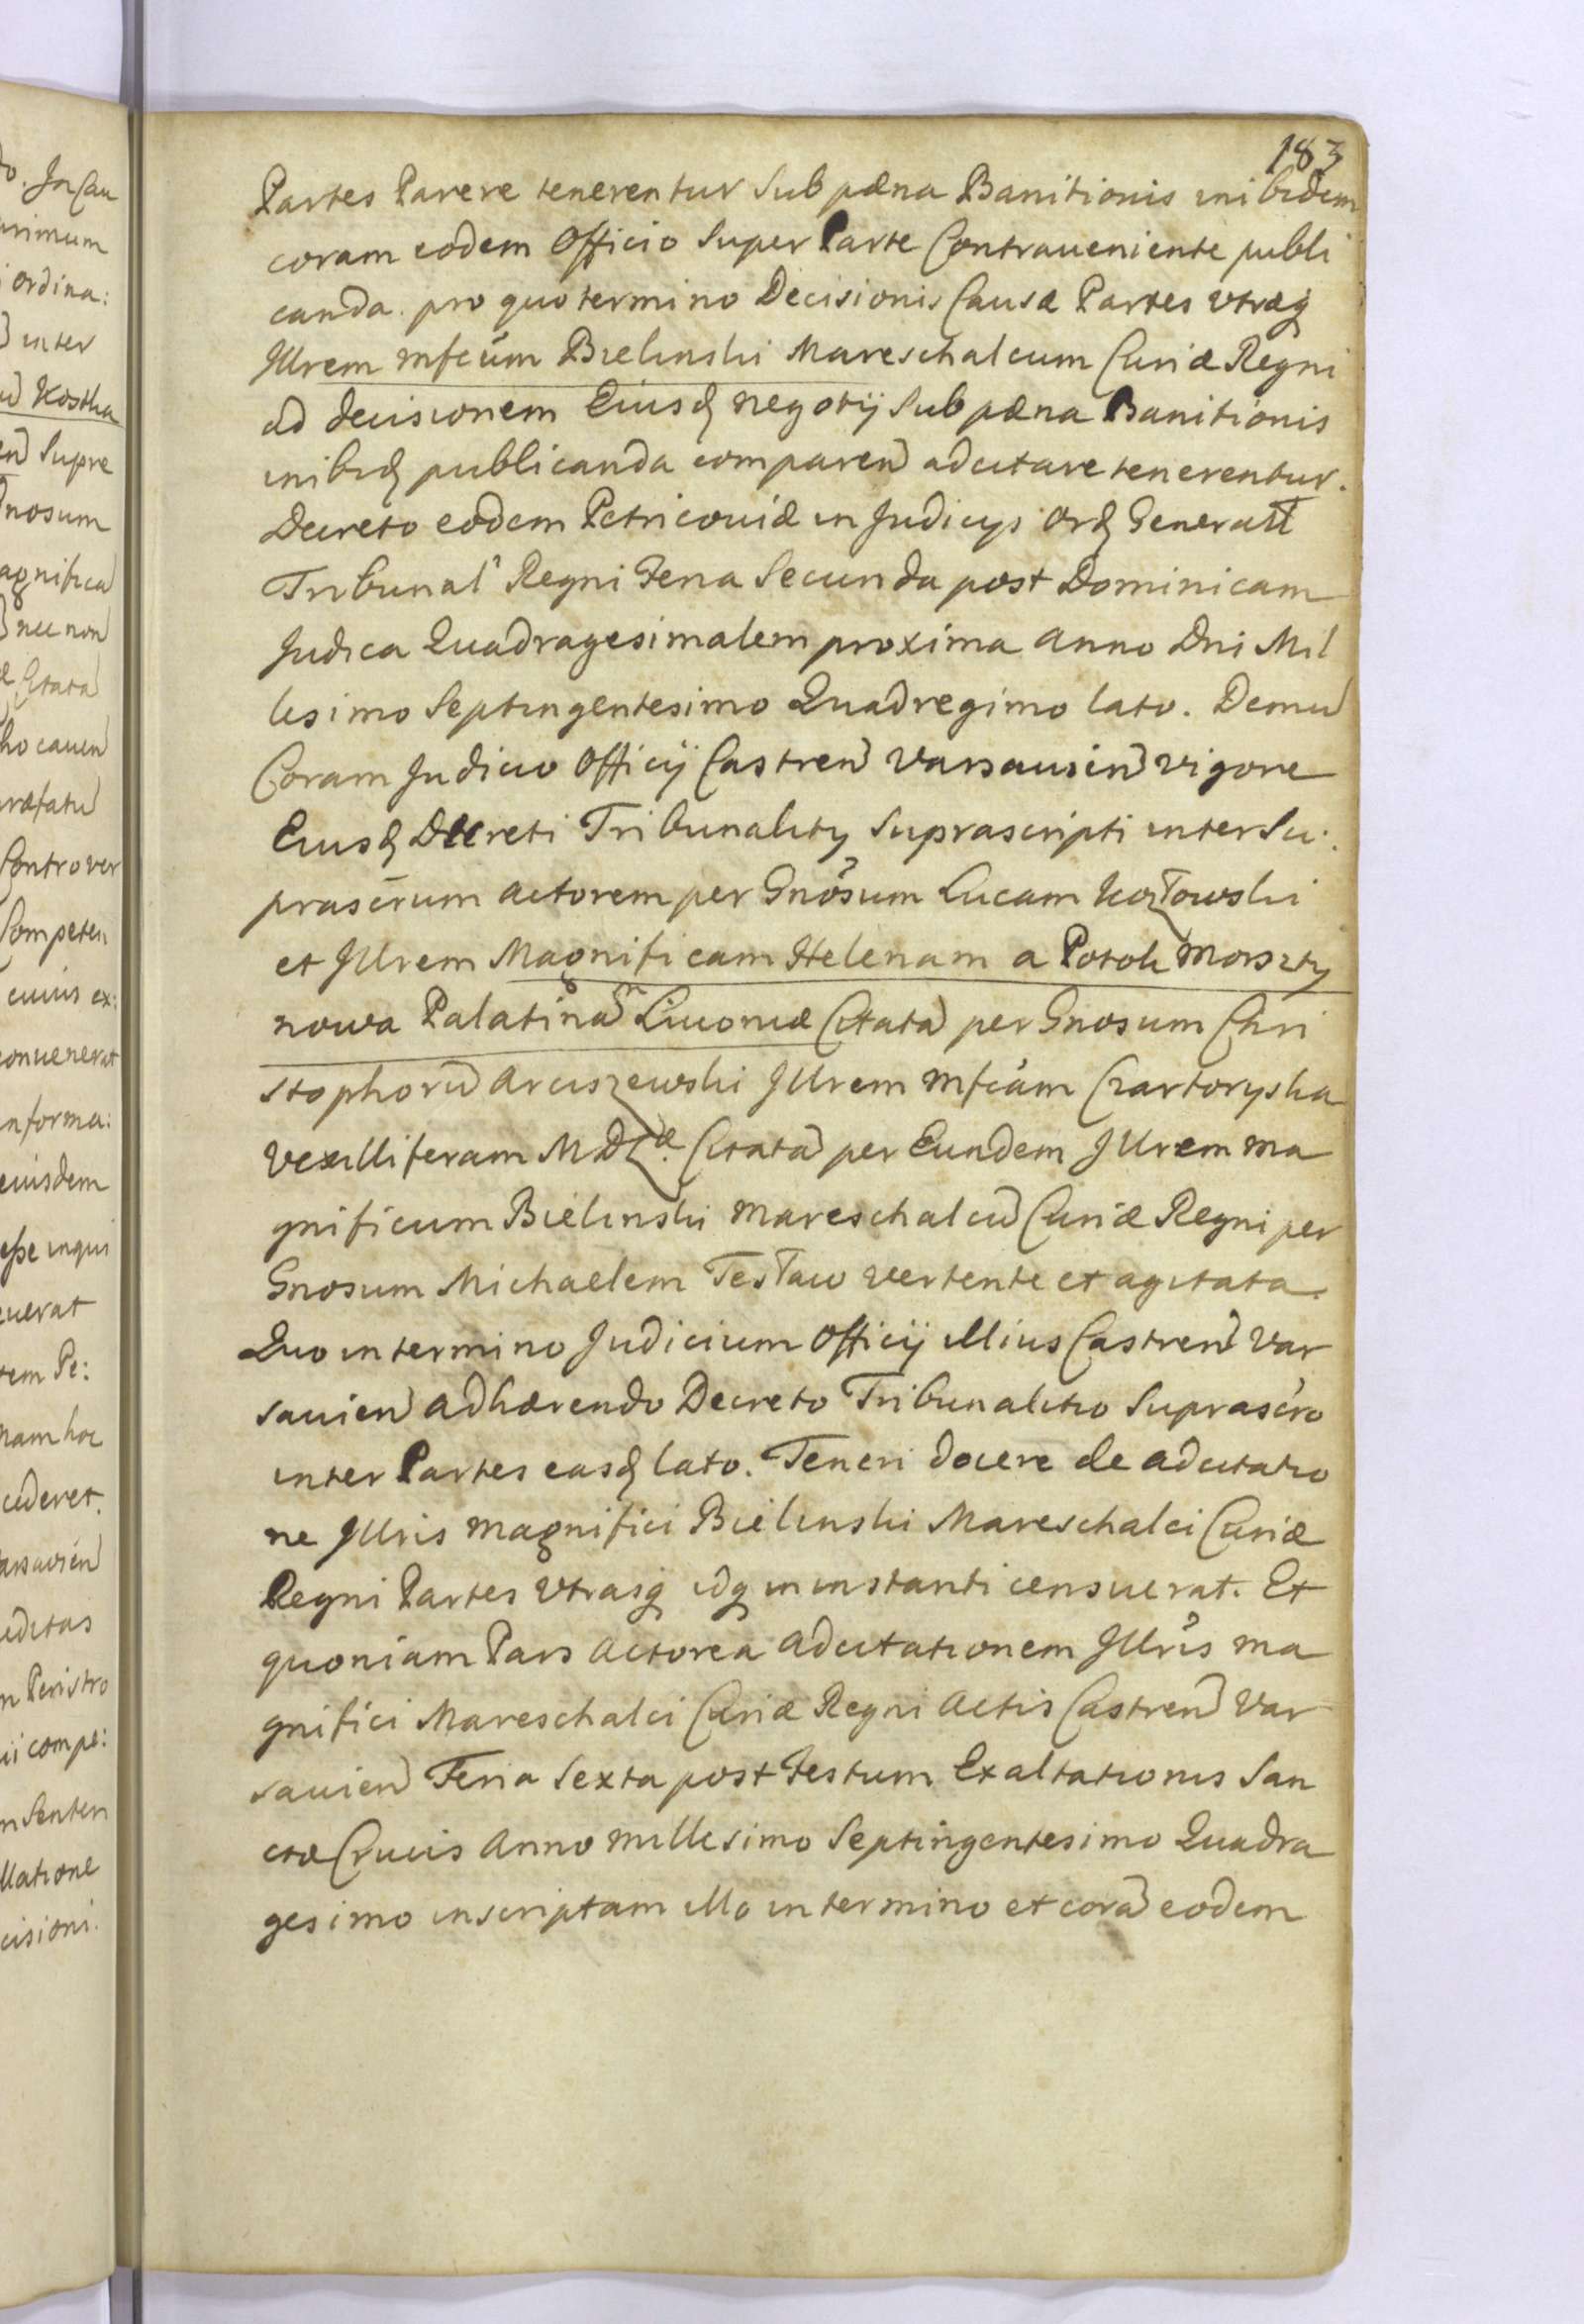 183
Partes Parere tenerentur Sub pæna Banitionis inibidem
coram eodem Officio Super Parte Contraueniente publi
canda. pro quo termino Decisionis Causæ Partes vtræq
Jllrem mfcum Bielinski Mareschalcum Curiæ Regni
ad decisionem Eiusq negotij Sub pæna Banitionis
inibiq publicanda comparen adcitare tenerentur.
Decreto eodem Petricouiæ in Judicijs Ord Generall
Tribunal Regni Feria Secunda post Dominicam
Judica Quadragesimalem proxima Anno Dni Mil
lesimo Septingentesimo Quadregimo lato. Demu
Coram Judicio Officij Castren Varsauien vigore
Eiusd Decreti Tribunality Suprascripti inter Su:
prascrum actorem per Gnosum Lucam Kozłowski
et Jllrem Magnificam Helenam a Potok Morszty
nowa Palatinam Liuoniæ Citata per Gnosum Chri
stophoru Arciszewski Jllrem mfcam Czartoryska
vexilliferam M D Læ. Citata per Eundem Jllrem ma
gnificum Bielinski Mareschalcu Curiæ Regni per
Gnosum Michaelem Tesław vertente et agitata.
Quo in termino Judicium Officij illius Castren Var
sauien adhærendo Decreto Tribunalitio Suprascro
inter Partes easd lato. Teneri docere de adcitatio
ne Jllris Magnifici Bielinski Mareschalci Curiæ
Regni Partes Vtrasq idq in instanti censuerat. Et
quoniam Pars Actorea adcitationem Jllris ma
gnifici Mareschalci Curiæ Regni Actis Castren Var
sauien Feria Sexta post Festum Exaltationis San
ctæ Crucis Anno millesimo Septingentesimo Quadra
gesimo inscriptam illo in termino et cora eodem